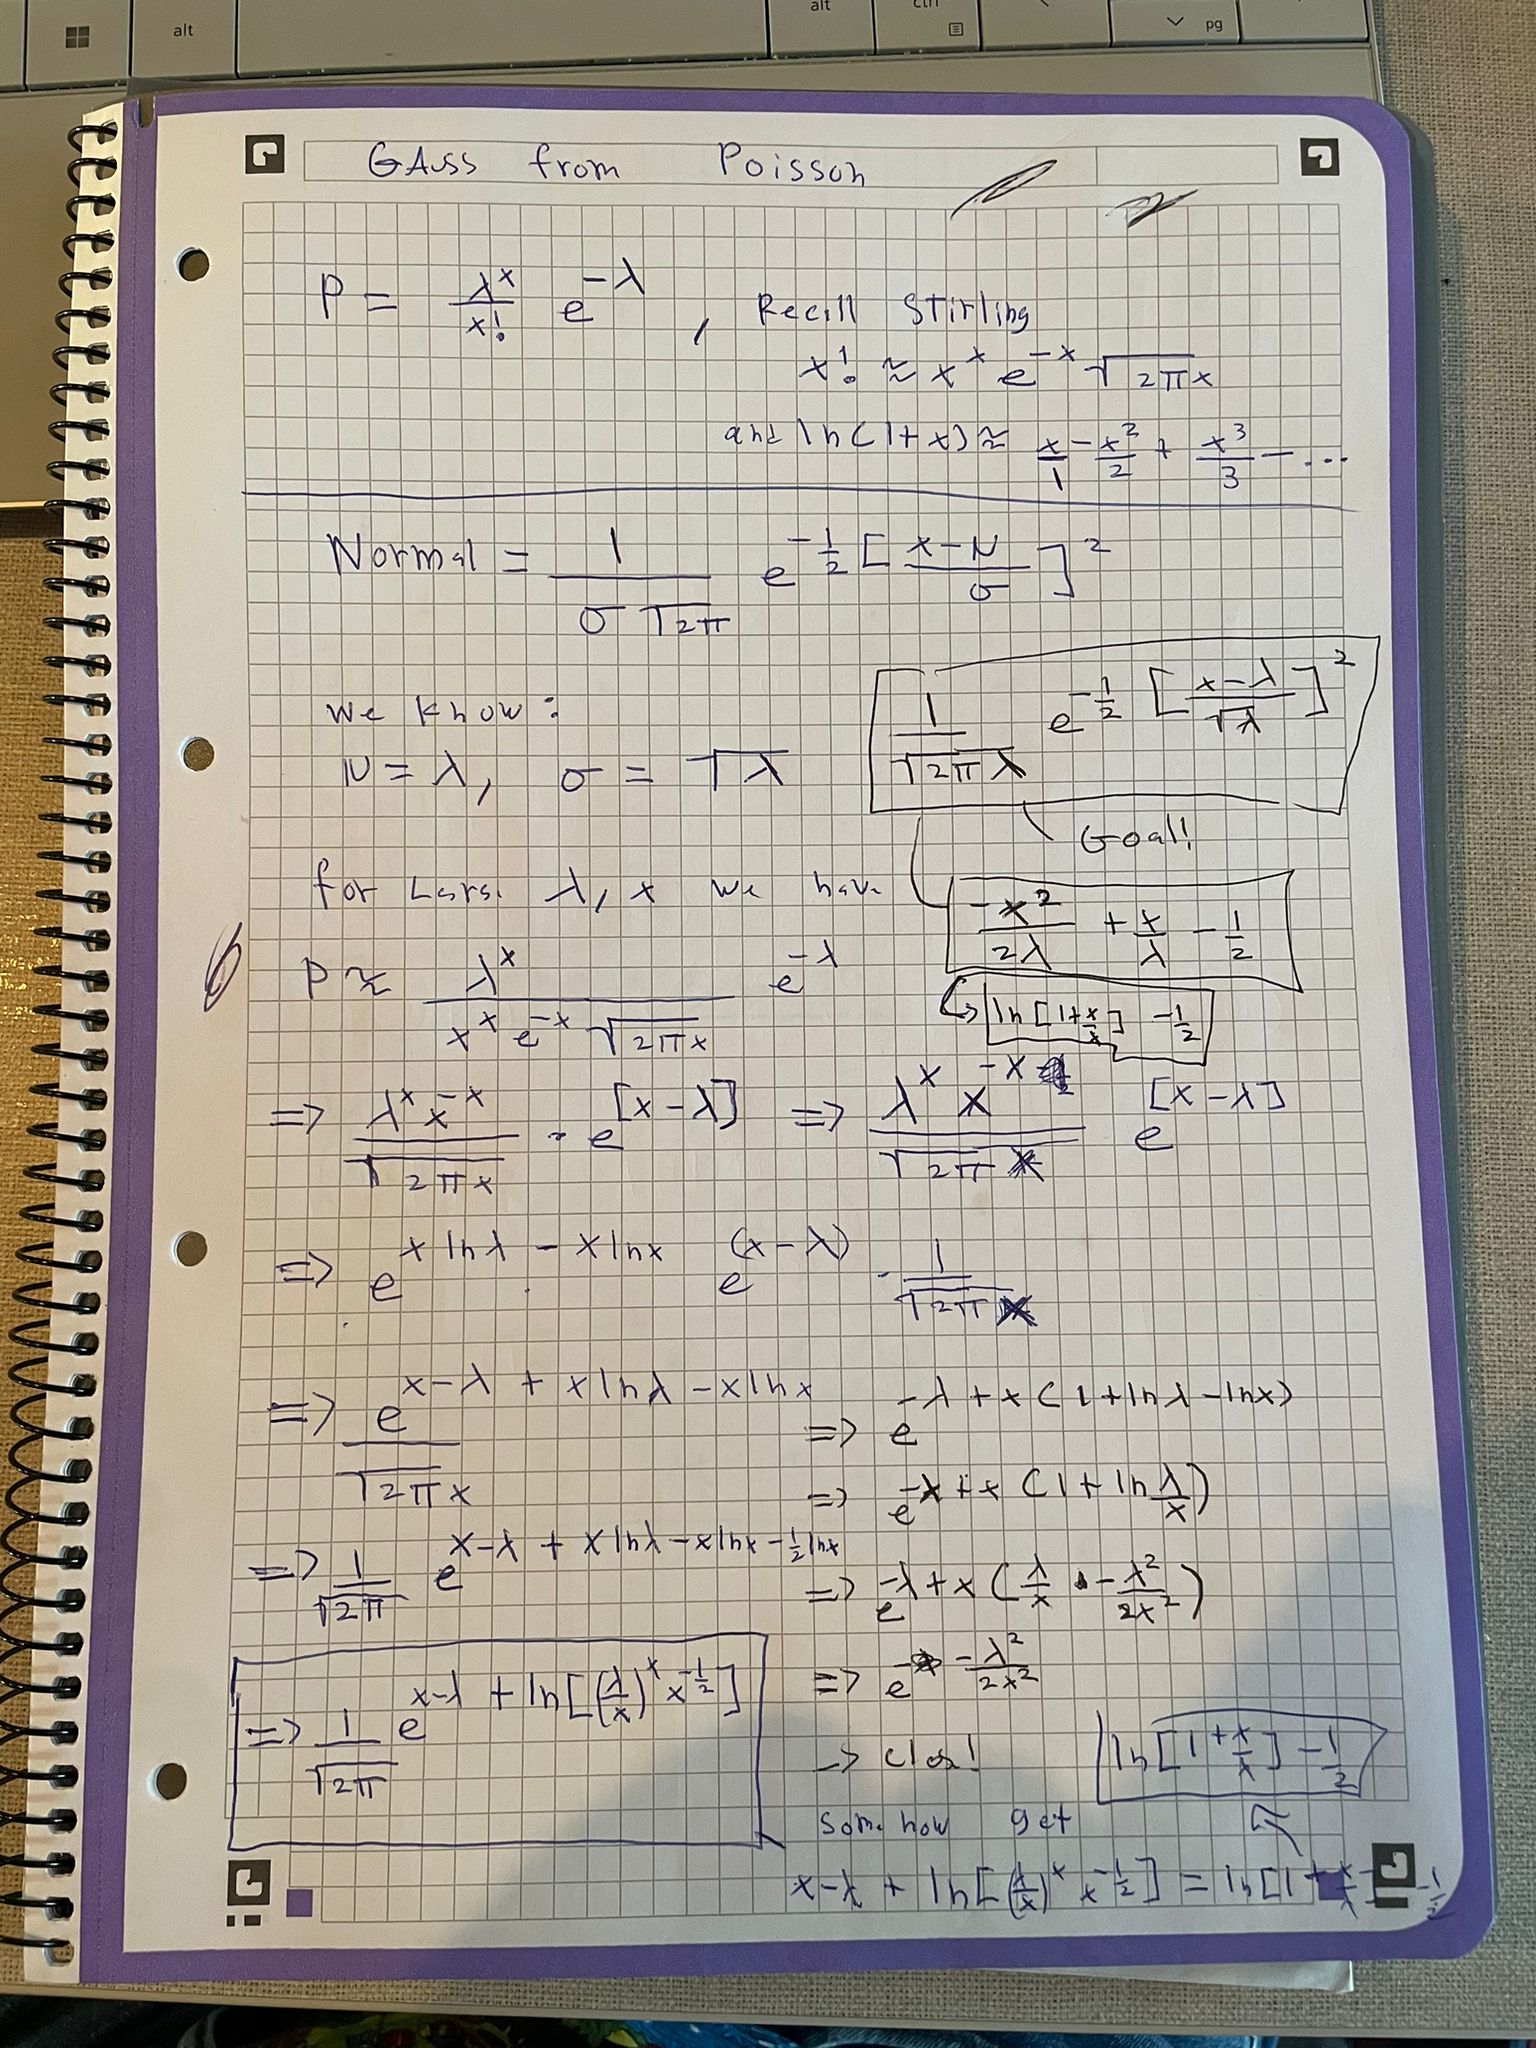 alt
alt
ctrl
pg
Gauss from Poisson
P = λ^x / x! e^-λ , Recall Stirling
x! ≈ x^x e^-x √2πx
and ln(1+x) ≈ x/1 - x^2/2 + x^3/3 - ...
Normal = 1 / σ√2π e^-1/2 [x-μ / σ]^2
we know:
μ = λ, σ = √λ
1 / √2πλ e^-1/2 [x-λ / √λ]^2
Goal!
for Large λ, x we have
-x^2/2λ + x/λ - 1/2
ln[1+x/λ] - 1/2
P ≈ λ^x / x^x e^-x √2πx e^-λ
=> λ^x x^-x / √2πx · e^[x-λ] => λ^x x^-x / √2π e^[x-λ]
=> e^x lnλ - x lnx e^(x-λ) · 1/√2π
=> e^x-λ + x lnλ - x lnx / √2πx
=> e^-λ + x(1+lnλ-lnx)
=> e^-λ + x(1+ln λ/x)
=> 1/√2π e^x-λ + x lnλ - x lnx - 1/2 lnx
=> e^-λ + x(λ/x - λ^2/2x^2)
=> 1/√2π e^x-λ + ln[(λ/x)^x x^-1/2]
=> e^- - λ^2/2x^2
-> close!
ln[1+x/λ] - 1/2
somehow get
x-λ + ln[(λ/x)^x x^-1/2] = ln[1+x/λ] - 1/2